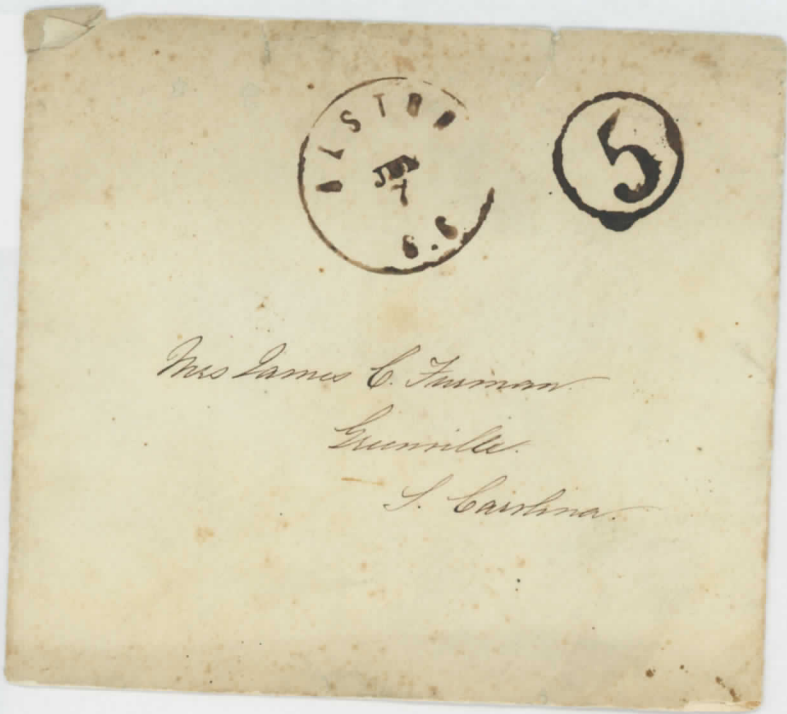 ALSTON
7
S.C.
5
Mrs James C. Furman
Greenville.
S. Carolina.